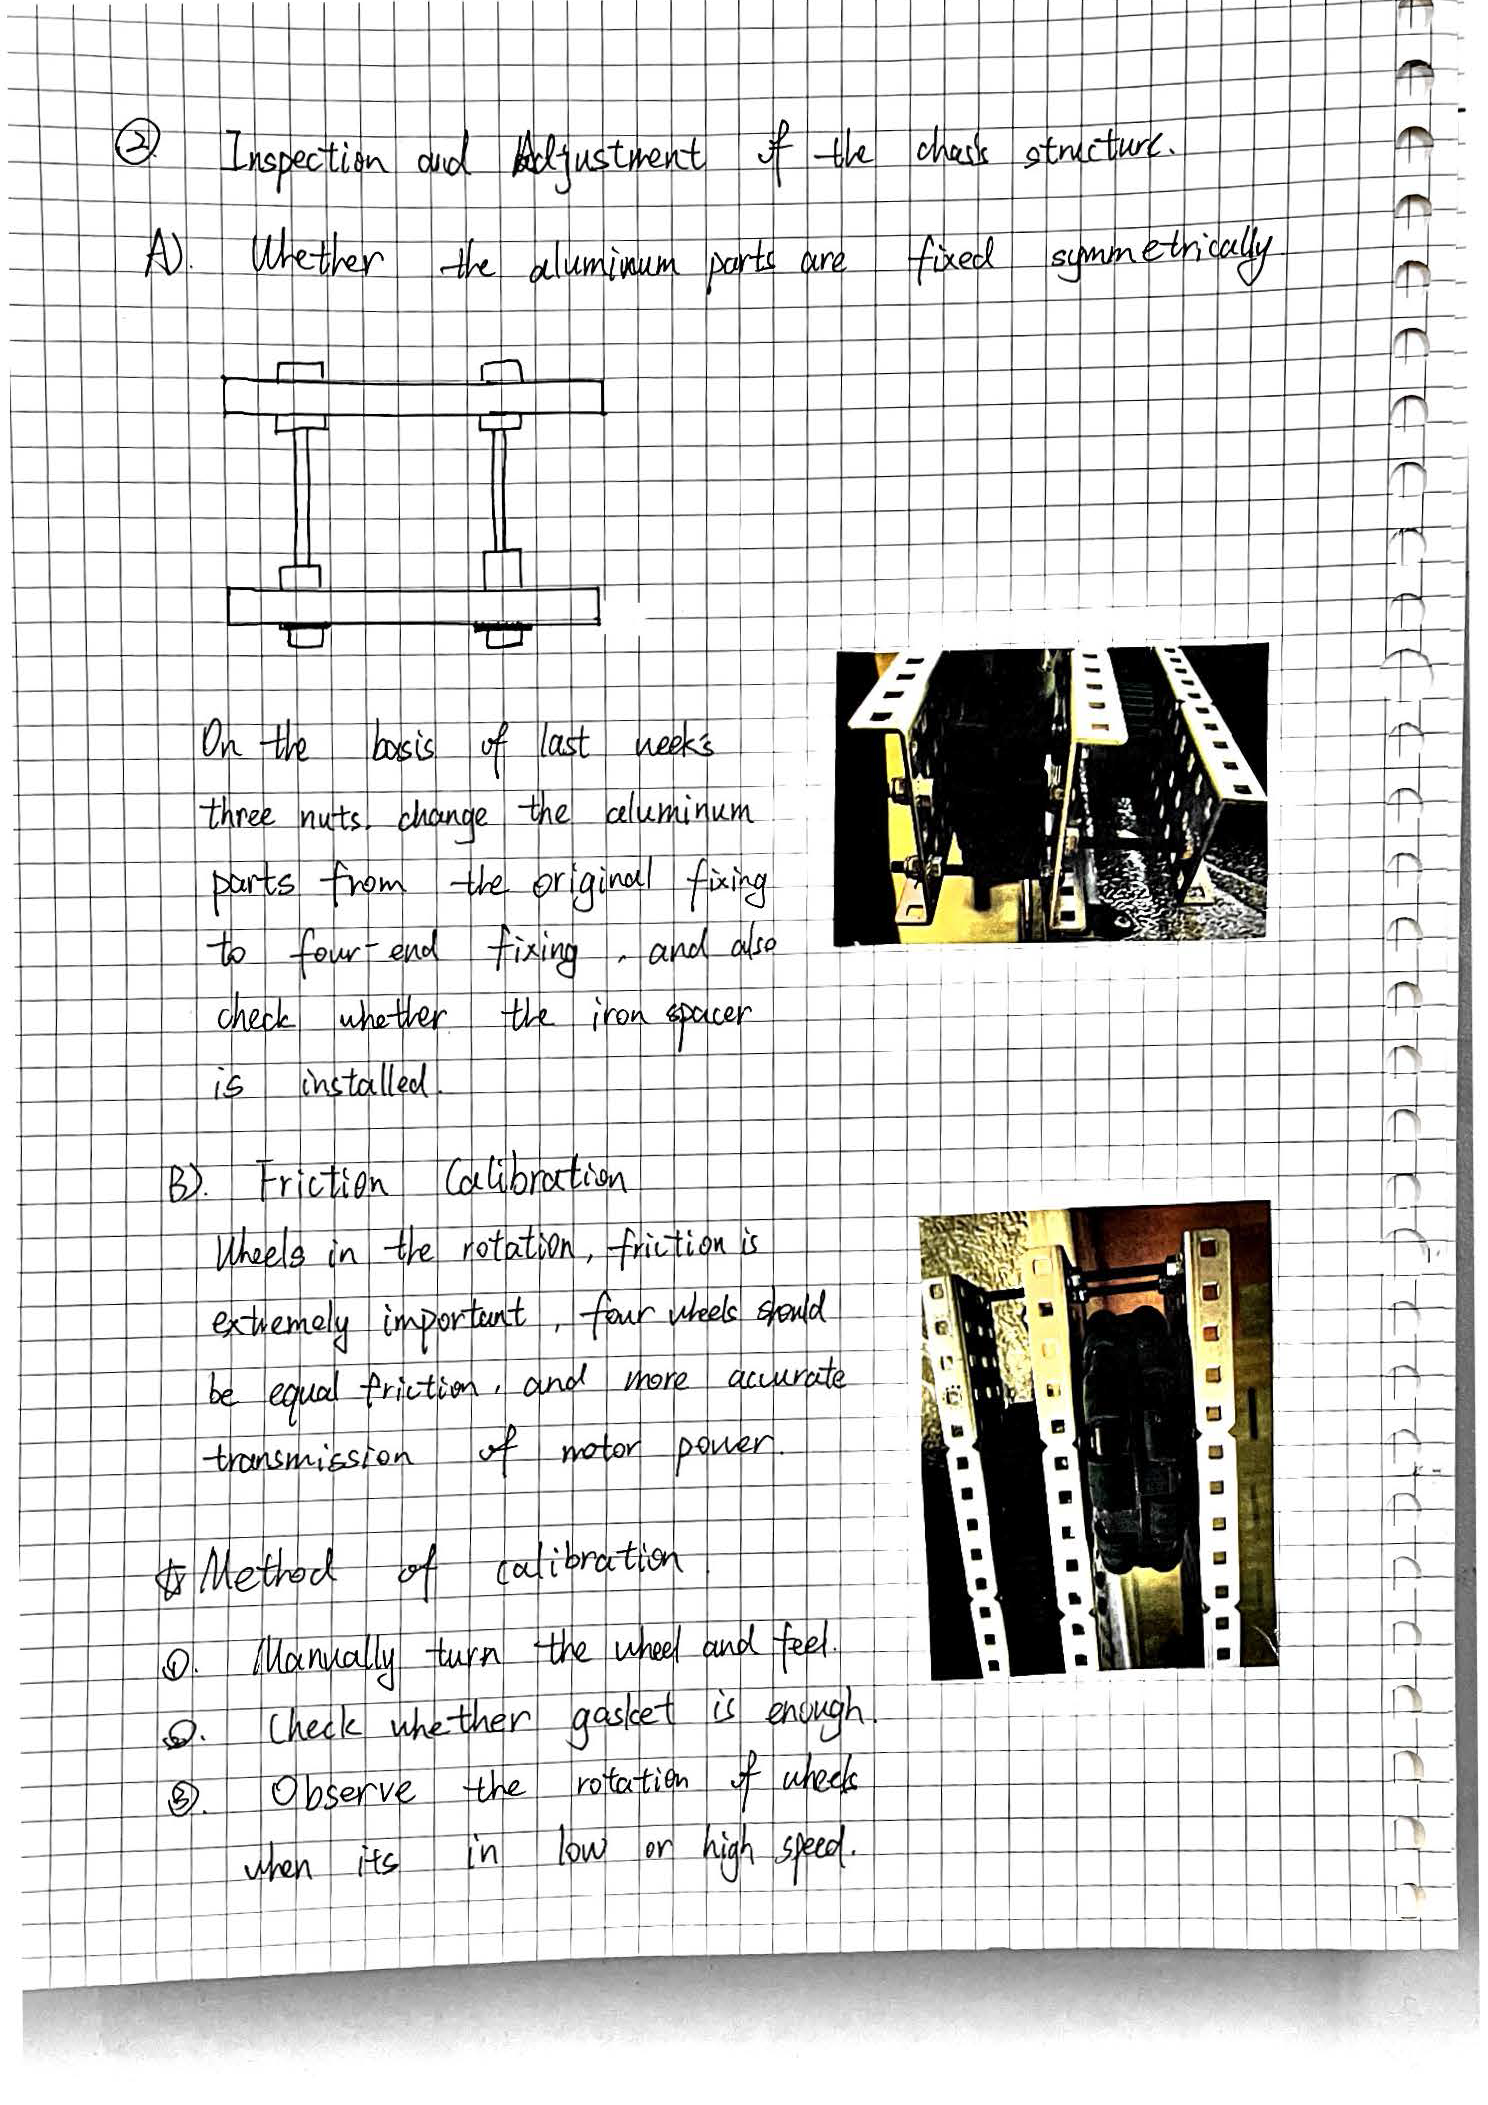 ② Inspection and Adjustment of the chasis structure.
A). Whether the aluminum parts are fixed symmetrically
On the basis of last week's
three nuts. change the aluminum
parts from the original fixing
to four-end fixing, and also
check whether the iron spacer
is installed.
B). Friction Calibration
Wheels in the rotation, friction is
extremely important, four wheels should
be equal friction, and more accurate
transmission of motor power.
☆ Method of calibration
①. Manually turn the wheel and feel.
②. Check whether gasket is enough.
③. Observe the rotation of wheels
when its in low or high speed.